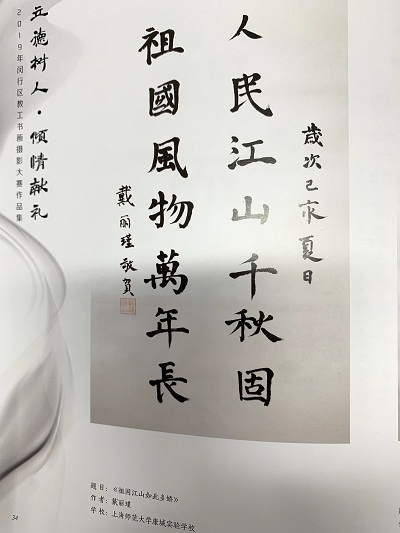 立德树人·倾情献礼
2019年闵行区教工书画摄影大赛作品集
歲次己亥夏日
人民江山千秋固
祖國風物萬年長
戴丽瑾敬賀
题目：《祖国江山如此多娇》
作者：戴丽瑾
学校：上海师范大学康城实验学校
34